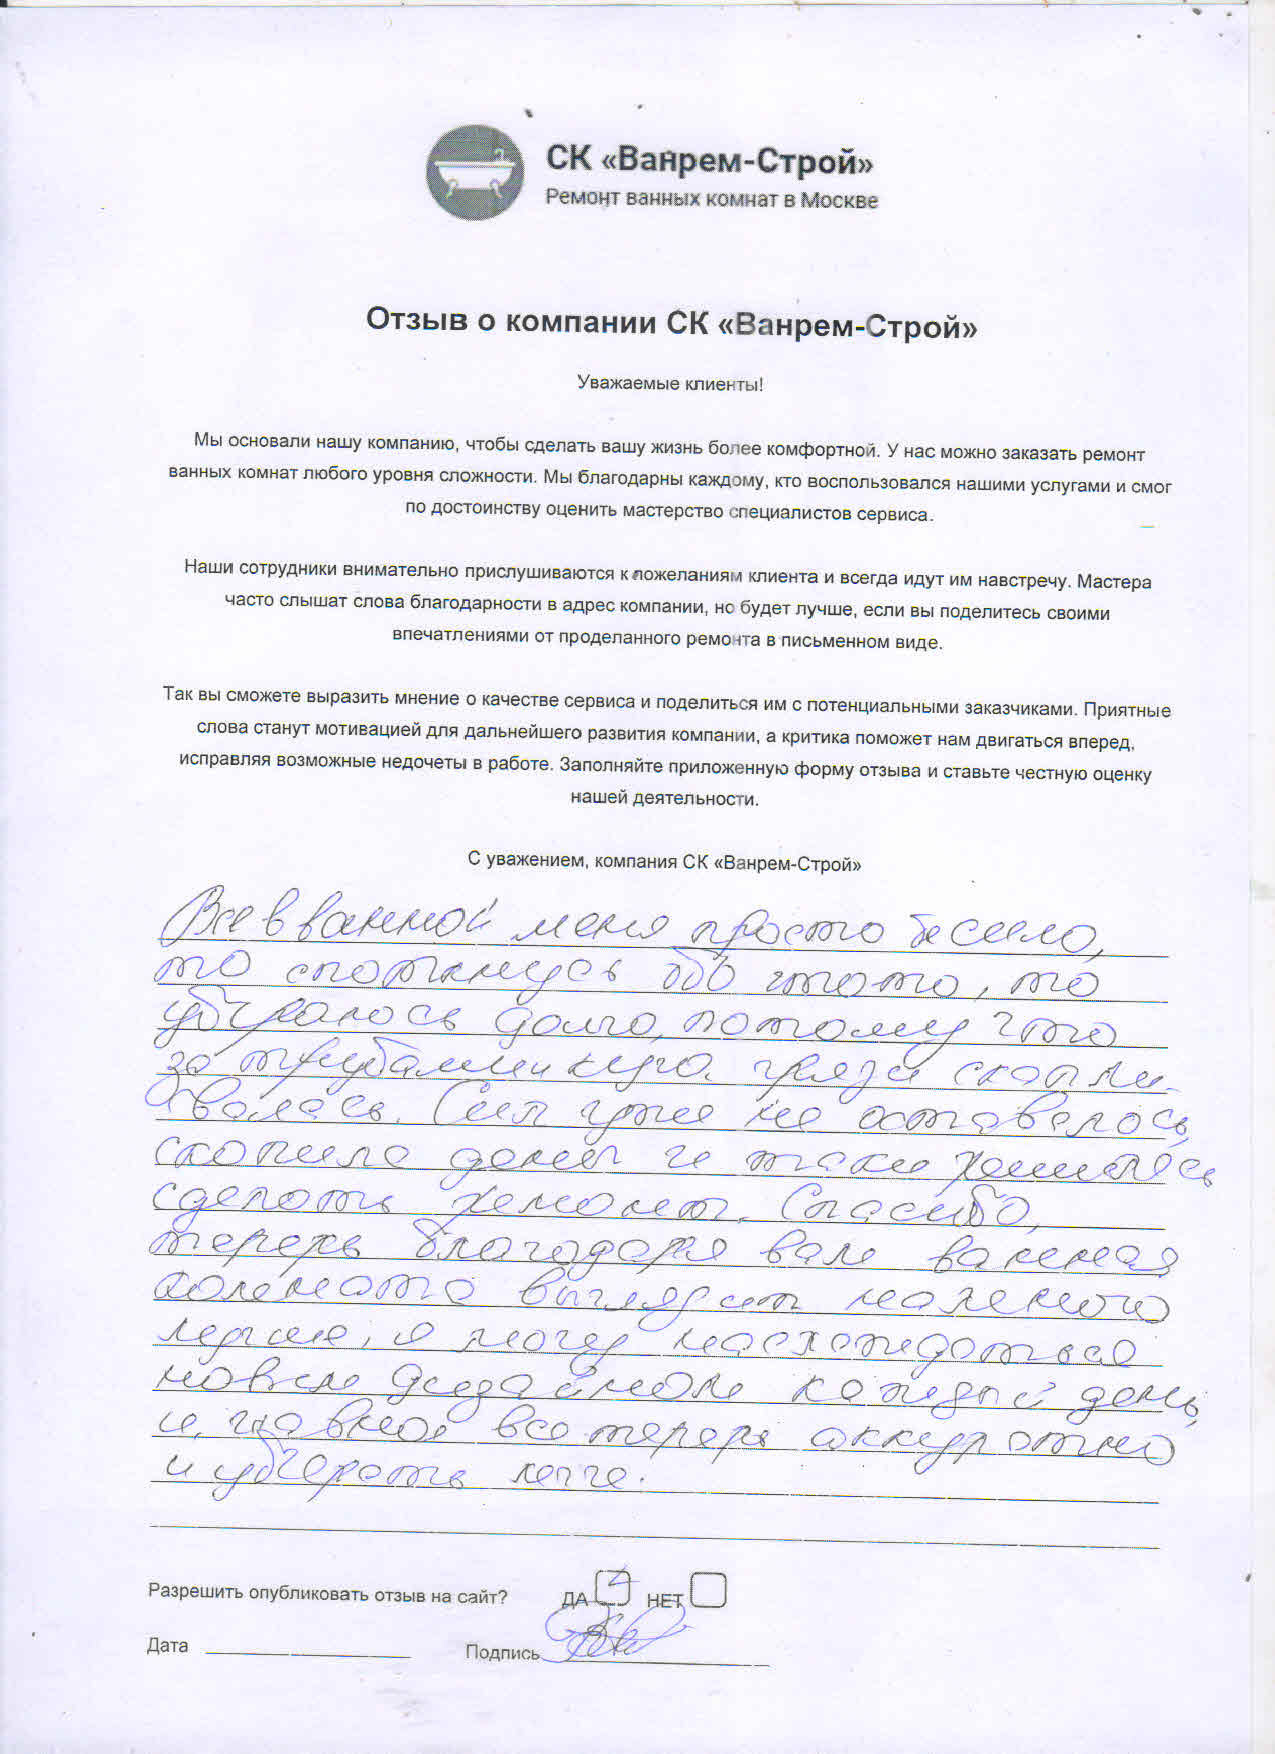 СК «Ванрем-Строй»
Ремонт ванных комнат в Москве
Отзыв о компании СК «Ванрем-Строй»
Уважаемые клиенты!
Мы основали нашу компанию, чтобы сделать вашу жизнь более комфортной. У нас можно заказать ремонт
ванных комнат любого уровня сложности. Мы благодарны каждому, кто воспользовался нашими услугами и смог
по достоинству оценить мастерство специалистов сервиса.
Наши сотрудники внимательно прислушиваются к пожеланиям клиента и всегда идут им навстречу. Мастера
часто слышат слова благодарности в адрес компании, но будет лучше, если вы поделитесь своими
впечатлениями от проделанного ремонта в письменном виде.
Так вы сможете выразить мнение о качестве сервиса и поделиться им с потенциальными заказчиками. Приятные
слова станут мотивацией для дальнейшего развития компании, а критика поможет нам двигаться вперед,
исправляя возможные недочеты в работе. Заполняйте приложенную форму отзыва и ставьте честную оценку
нашей деятельности.
С уважением, компания СК «Ванрем-Строй»
Все в ванной меня просто бесило,
то споткнусь обо чтото, то
убираюсь долго, потому что
за трубами куча грязи скапли-
валась. Сил уже не оставалось,
скопила денег и таки решилась
сделать ремонт. Спасибо,
теперь благодаря вам ванная
комната выглядит намного
лучше, я могу наслаждаться
новым дизайном каждый день,
и, главное все теперь аккуратно
и убирать легче.
Разрешить опубликовать отзыв на сайт? ДА НЕТ
Дата Подпись